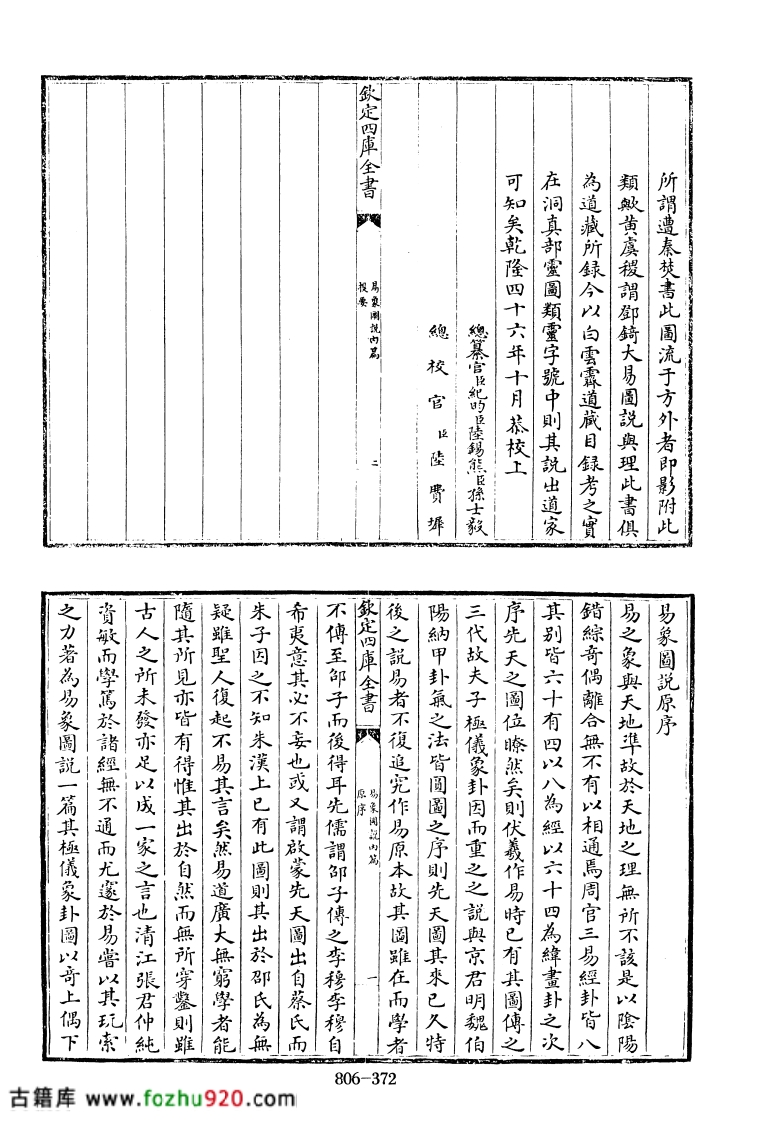 所謂遭秦焚書此圖流于方外者即影附此
類歟黄虞稷謂鄧錡大易圖說與理此書俱
為道藏所録今以白雲霽道藏目録考之實
在洞真部靈圖類靈字號中則其說出道家
可知矣乾隆四十六年十月恭校上
總纂官臣紀昀臣陸錫熊臣孫士毅
總校官臣陸費墀
欽定四庫全書
易象圖說内篇
提要
二
易象圖說原序
易之象與天地準故於天地之理無所不該是以陰陽
錯綜奇偶離合無不有以相通焉周官三易經卦皆八
其别皆六十有四以八為經以六十四為緯畫卦之次
序先天之圖位瞭然矣則伏羲作易時已有其圖傳之
三代故夫子極儀象卦因而重之之說與京君明魏伯
陽納甲卦氣之法皆圓圖之序則先天圖其來已久特
後之說易者不復追究作易原本故其圖雖在而學者
欽定四庫全書
易象圖說内篇
原序
一
不傳至邵子而後得耳先儒謂邵子傳之李穆李穆自
希夷意其必不妄也或又謂啟蒙先天圖出自蔡氏而
朱子因之不知朱漢上已有此圖則其出於邵氏為無
疑雖聖人復起不易其言矣然易道廣大無窮學者能
隨其所見亦皆有得惟其出於自然而無所穿鑿則雖
古人之所未發亦足以成一家之言也清江張君仲純
資敏而學篤於諸經無不通而尤邃於易嘗以其玩索
之力著為易象圖說一篇其極儀象卦圖以奇上偶下
806-372
古籍库 www.fozhu920.com